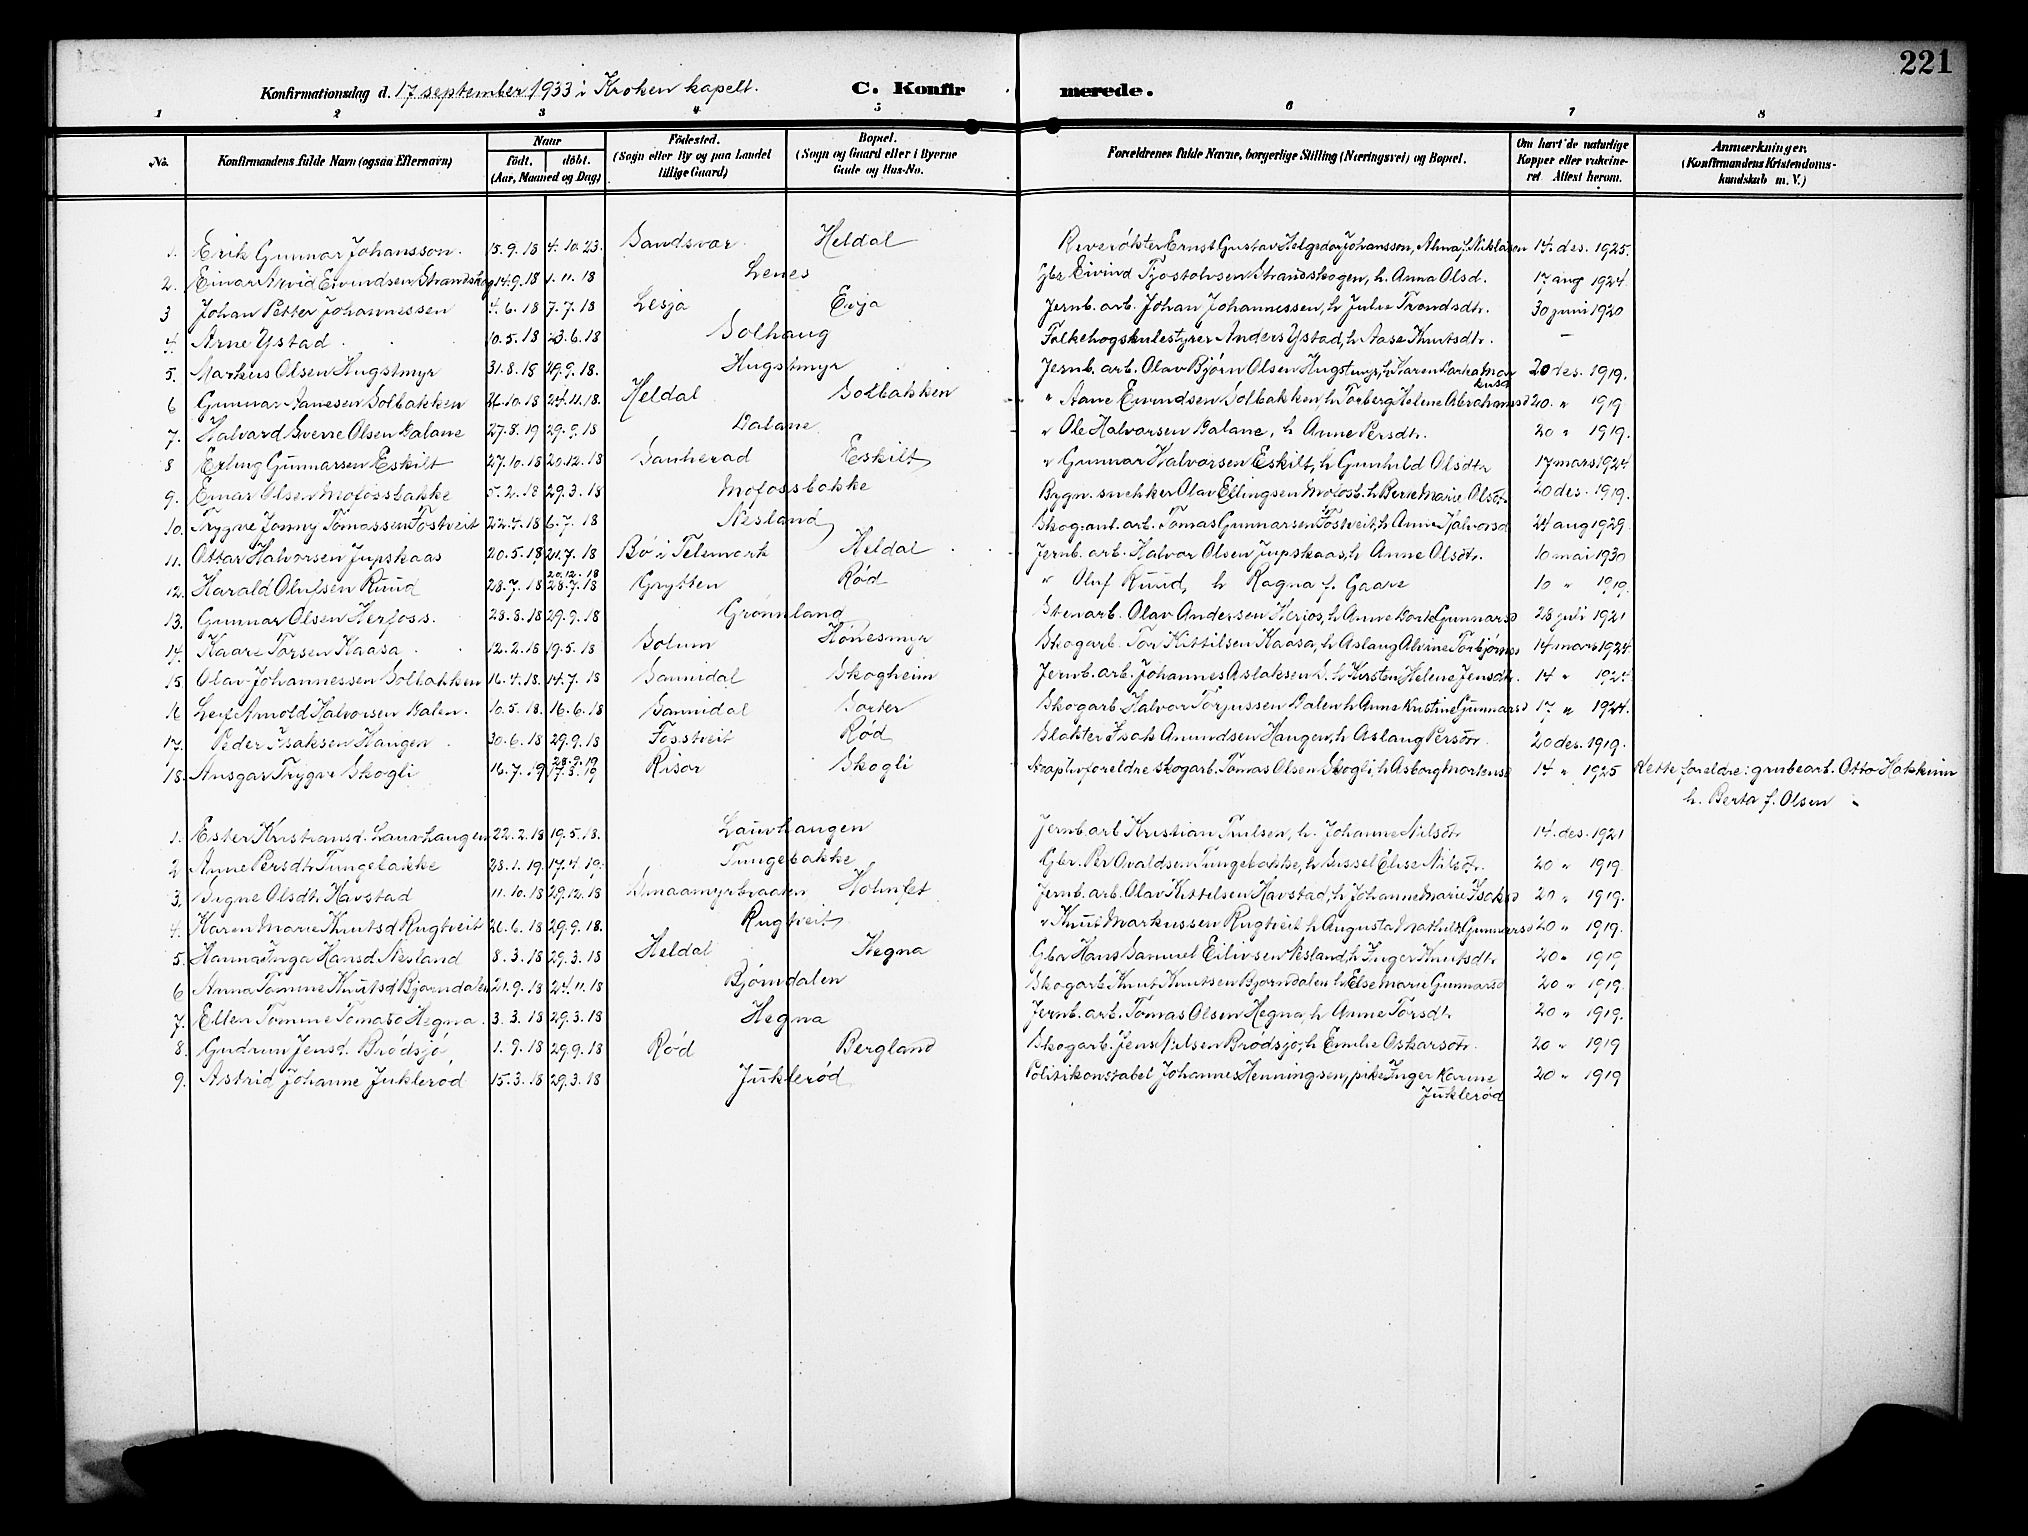 221
Konfirmationsdag d. 17 september 1933 i Kroken kapell. C. Konfirmerede.
1 2 3 4 5 6 7 8
No. Konfirmandens fulde Navn (ogsaa Efternavn) Naar født. døbt. (Aar, Maaned og Dag) Fødested. (Sogn eller By og paa Landet tillige Gaard) Bopæl. (Sogn og Gaard eller i Byerne Gade og Hus-No. Forældrenes fulde Navne, borgerlige Stilling (Næringsvei) og Bopæl. Om havt de naturlige Kopper eller vakcineret Attest herom. Anmærkninger. (Konfirmandens Kristendomskundskab m. V.)
1. Erik Gunnar Johansson. 15.9.18 4.10.23. Sandsvær Heldal Ernst Gustav Johansson, Alma f. Niklasen 14. des. 1925.
2. Einar Arvid Eivindsen 14.9.18 1.11.18 Lenes Gbr. Eivind Tjostolvsen Strandskogen, h. Anna Olsd. 17 aug 1924.
3 Johan Petter Johannessen 4.6.18 7.7.18 Lesja Eija Jernb. arb. Johan Johannessen, h Julie Trondsdtr. 30 juni 1920
4. Arne Ystad 10.5.18 23.6.18 Solhaug Folkehøgskulestyrer Anders Ystad, h Aase Knutsdtr. –
5. Markus Olsen Hugstmyr 31.8.18 29.9.18. Hugstmyr Jernb. arb. Olav Bjørn Olsen Hugstmyr, h Karen 20 des. 1919.
6 Gunnar Aanesen Solbakken 26.10.18 24.11.18. Heldal Solbakken " Aane Eivindsen Solbakken, h Torberg Helene Abrahamsd 20. " 1919
7. Halvard Sverre Olsen Dalane 27.8.19 29.9.18 Dalane " Ole Halvorsen Dalane, h Anne Persdtr. 20 " 1919.
8 Erling Gunnarsen Eskilt 27.10.18 20.12.18 Sauherad Eskilt " Gunnar Halvorsen Eskilt, h Gunhild Olsdtr 17 mars 1924.
9. Einar Olsen Mofossbakke 5.2.18 29.3.18 Mofossbakke Bygn. snekker Olav Ellingsen Mofosb. h Berte Marie Olsdtr 20 des. 1919.
10. Trygve Jonny Tomassen Fostveit 22.4.18 6.7.18 Nesland Skog.ant.arb. Tomas Gunnarsen Fostveit, h Anne Halvorsd 24 aug 1929.
11. Ottar Halvorsen Jupskaas 20.5.18 21.7.18 Bø i Telemark Heldal Jernb. arb. Halvor Olsen Jupskaas, h Anne Olsdtr. 10 mai 1930
12. Harald Olufsen Ruud 28.7.18 20.12.18 28.7.18 Grytten Rød " Oluf Ruud, h Ragna f. Gaare 10 " 1919.
13. Gunnar Olsen Herfoss. 28.8.18 29.9.18 Grønnland Stenarb. Olav Andersen Herfos, h Anne Gunnarsd 28 juli 1921
14. Kaare Torsen Kaasa 12.2.18 19.5.18 Solum Hønesmyr Skogarb. Tor Kittilsen Kaasa, h Aslaug Alvine Torbjørnsd 14 mars 1924
15. Olav Johannessen Solbakken 16.4.18. 14.7.18 Sannidal Skogheim Jernb. arb. Johannes Aslaksen S. h Kirsten Helene Jensdtr. 14 " 1924
16 Leif Arnold Halvorsen Dalen. 10.5.18. 16.6.18 Sannidal Sorter Skogarb Halvor Torjussen Dalen h Anne Kristine Gunnarsd 17 " 1924.
17. Peder Isaksen Haugen 30.6.18 29.9.18 Fosstveit Rød Slakter Isak Amundsen Haugen, h Aslaug Persdtr. 20 des. 1919.
18. Ansgar Trygve Skogli 16.7.19 28.9.19 17.8.19 Risør Skogli Adoptivforeldre skogarb. Tomas Olsen Skogli, h Asborg Mortensd 14 " 1925 Rette foreldre: grubearb. Otto
h. Berta f. Olsen
1. Ester Kristiansd. Lauvhaugen 22.2.18 19.5.18. Lauvhaugen Jernb arb Kristian Trulsen, h. Johanne Nielsdtr 14. des. 1921
2 Anne Persdtr Tungebakke 28.1.19. 17.4.19. Tungebakke Gbr. Per Avaldsen Tungebakke, h Sissel Elise Nilsdtr. 20 " 1919.
3. Signe Olsdtr. Havstad 11.10.18 29.12.18 Smaamyrbraaten Holmfet Jernb. arb. Olav Kittelsen Havstad, h Johanne Marie Isaksd 20 " 1919.
4. Karen Marie Knutsd Rugtveit 26.6.18 29.9.18. Rugtveit " Knut Markussen Rugtveit, h Augusta Mathilde Gunnarsd 20 " 1919.
5. Hanna Inga Hansd Nesland 8.3.18 29.3.18 Heldal Hegna Gbr Hans Samuel Eilivsen Nesland, h Inger Knutsdtr 20 " 1919
6 Anna Tomine Knutsd Bjørndalen 21.9.18 24.11.18 Bjørndalen Skogarb. Knut Knutsen Bjørndalen h Else Marie Gunnarsd 20 " 1919.
7. Ellen Tomine Tomasd Hegna. 3.3.18 29.3.18 Hegna Jernb. arb. Tomas Olsen Hegna, h Anne Torsdtr. 20 " 1919.
8. Gudrun Jensd. Brødsjø 1.9.18 29.9.18 Rød Bergland Skogarb. Jens Nilsen Brødsjø, h Emilie Oskarsdtr. 20 " 1919
9. Astrid Johanne Juklerød 15.3.18 29.3.18 Juklerød Politikonstabel Johannes Henningsen, pike Inger Karine 20 " 1919
Juklerød